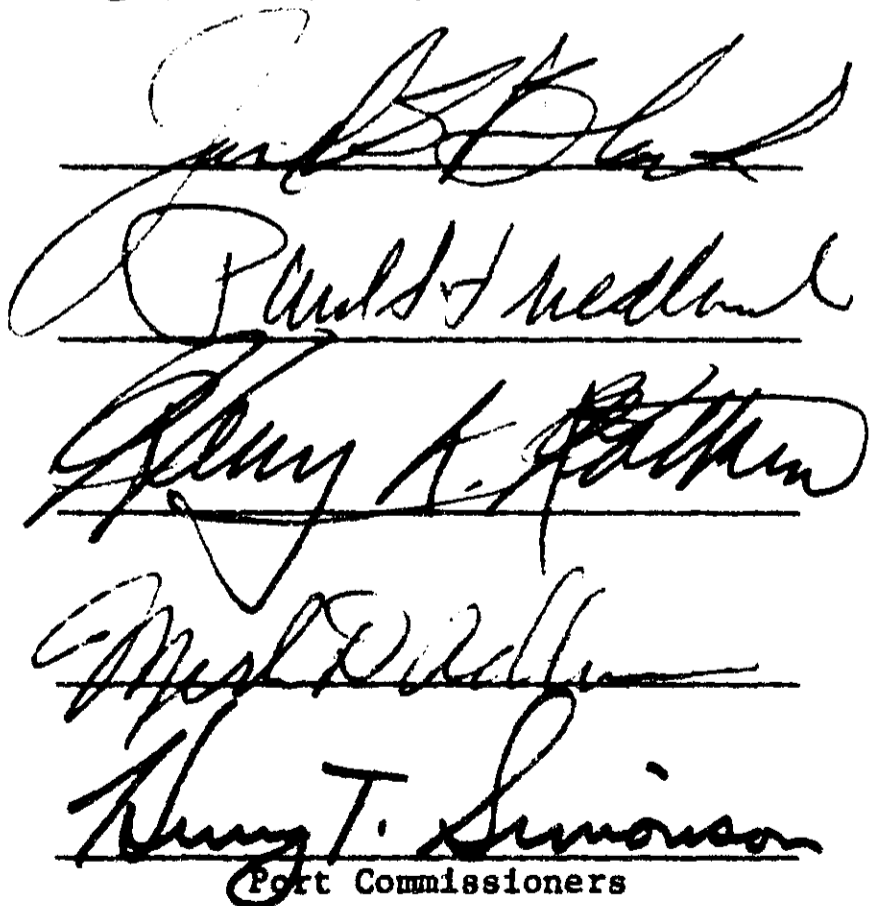 Jack S. Block
Paul S. Friedland
Henry L. Kotkins
Merle D. Adlum
Henry T. Simonson
Port Commissioners